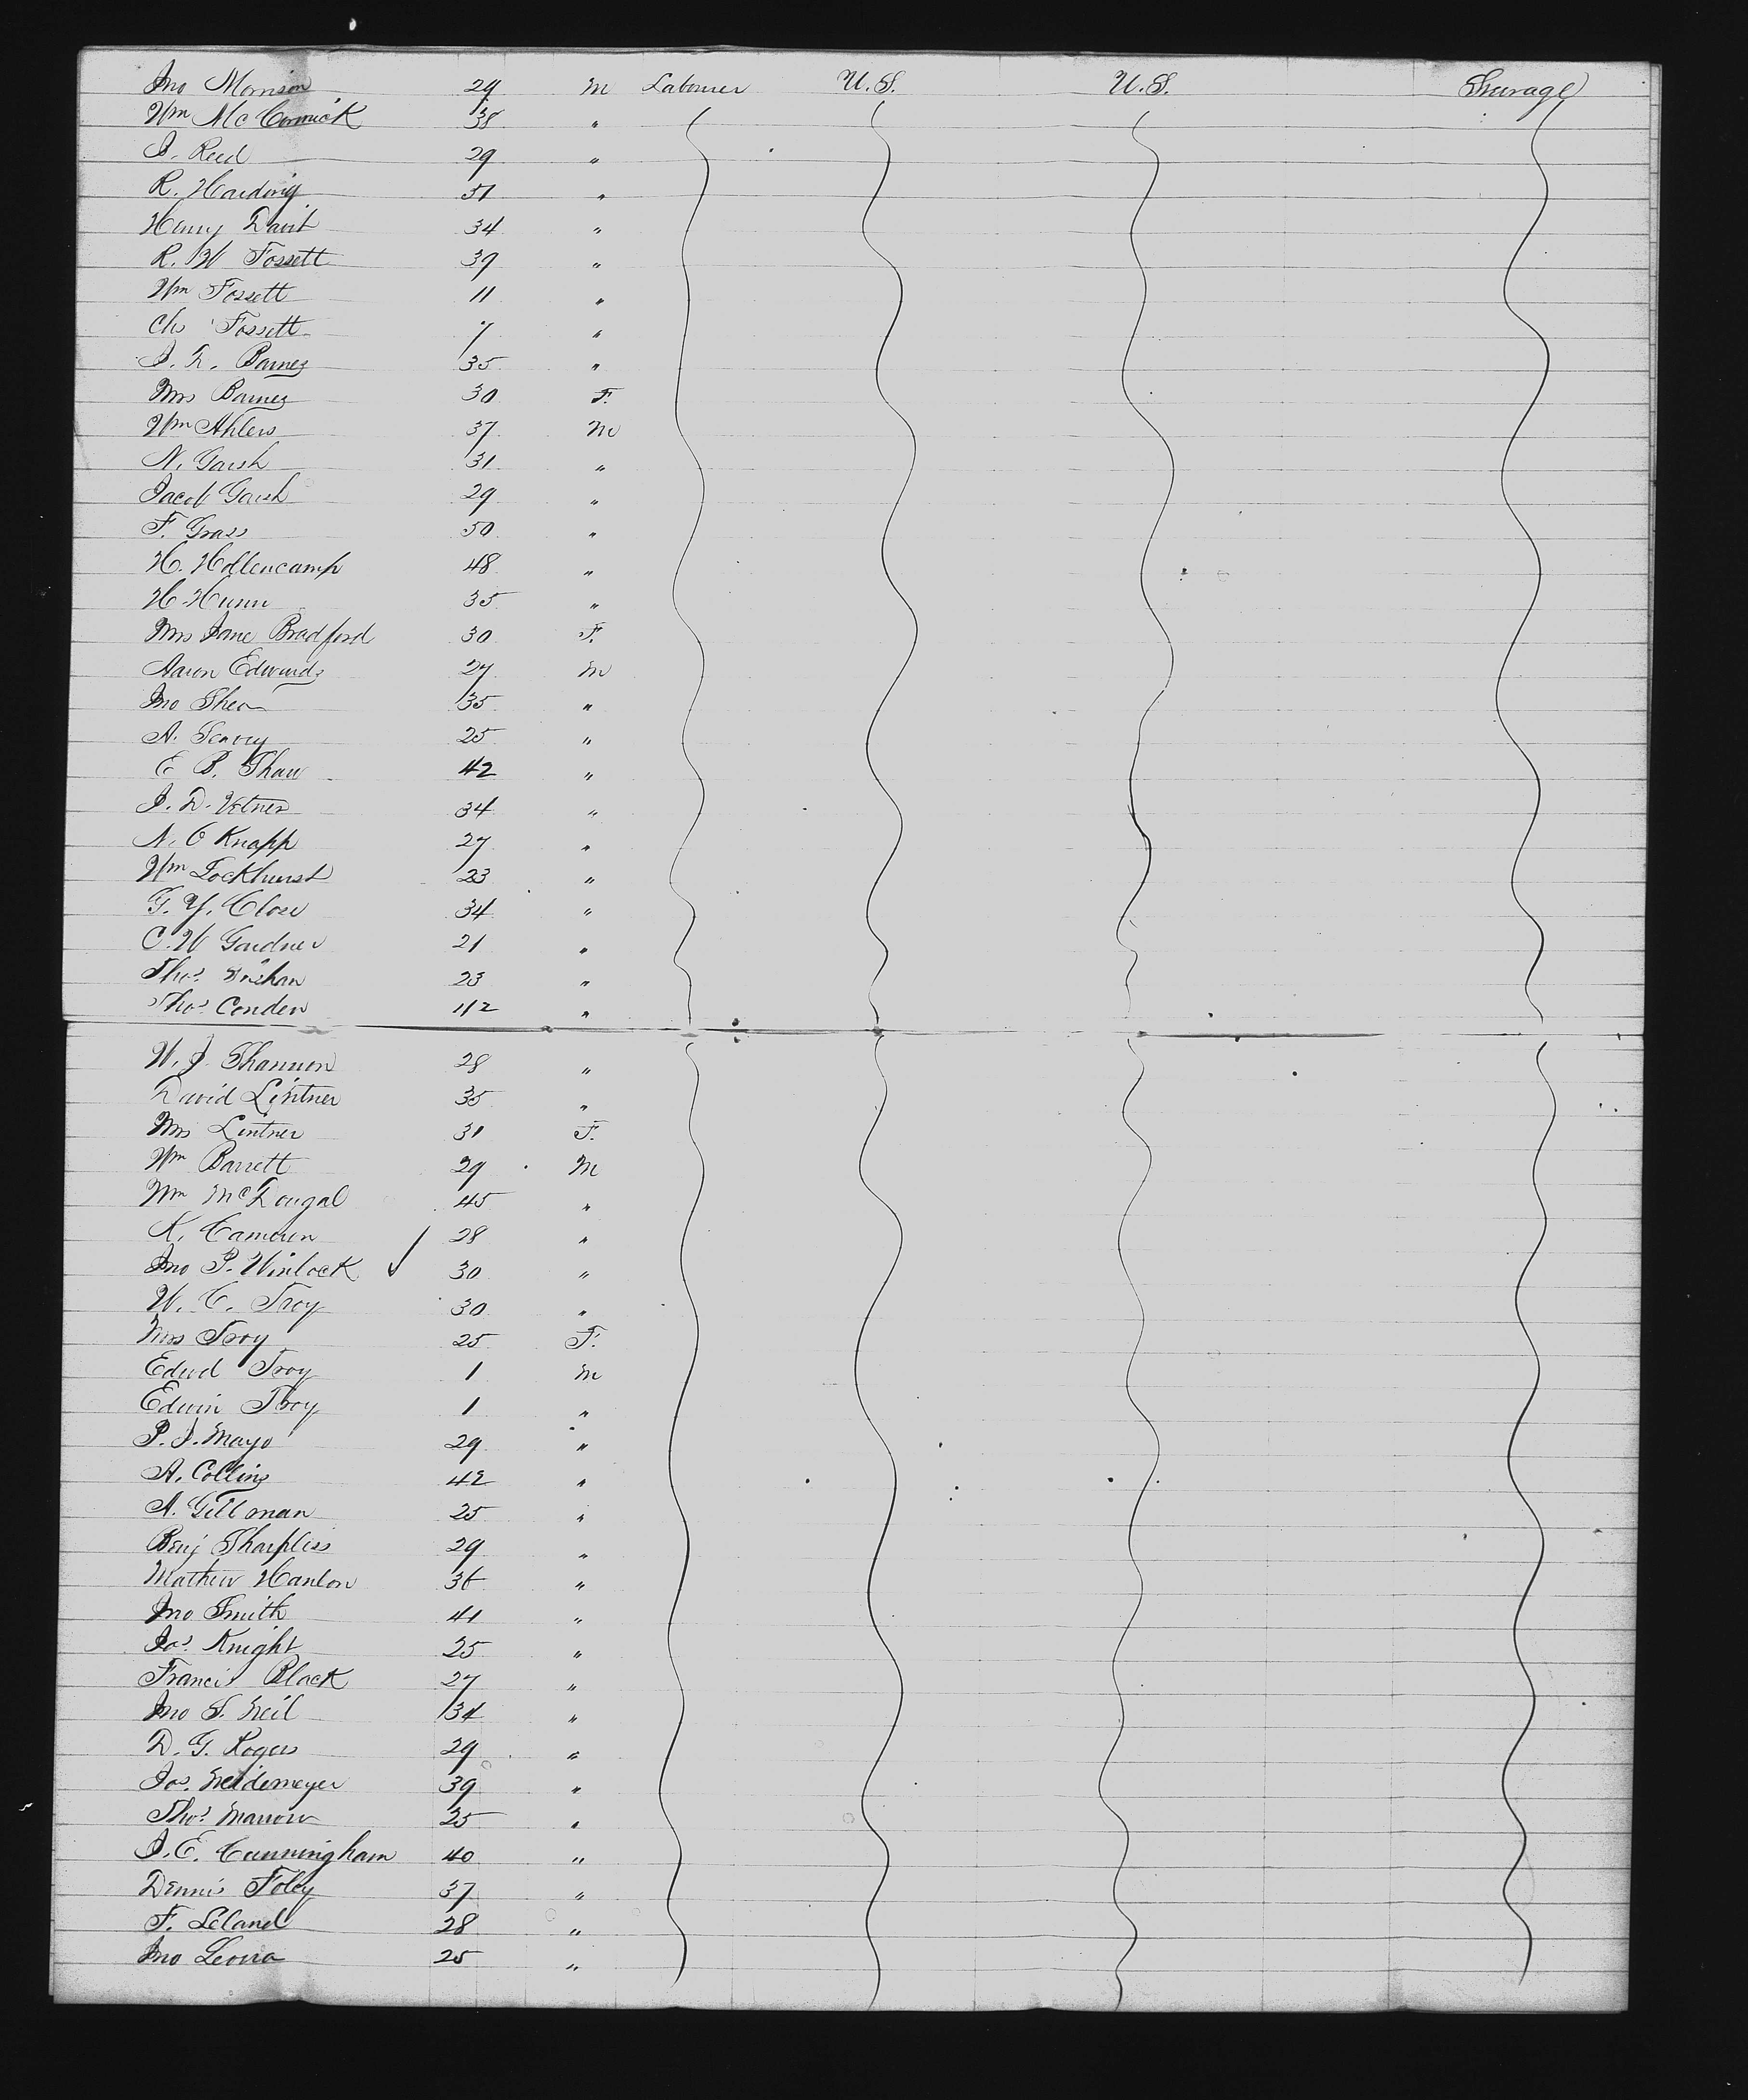 Jno Morrison 29 M Labourer U.S. U.S. Steerage
Wm McCormick 38 "
J. Reed 29 "
R. Harding 31 "
Henry Davis 34 "
R. W Fossett 39 "
Wm Fossett 11 "
Chs Fossett 7 "
J. L. Barnes 35 "
Mrs Barnes 30 F.
Wm Ahlers 37 M
N. Garsh 31 "
Jacob Garsh 29 "
F. Grass 50 "
H. Hollencamp 48 "
H. Hunn 35 "
Mrs Jane Bradford 30 F.
Aaron Edwards 27 M
Jno Shea 35 "
A. Seavey 25 "
E B. Shaw 42 "
J. D. 34 "
N. O Knapp 27 "
Wm Lockhurst 23 "
G. Y. Close 34 "
C. W Gardner 21 "
Thos 23 "
Thos Conden 42 "
W. J. Shannon 28 "
David Lintner 35 "
Mrs Lintner 31 F.
Wm Barrett 29 M
Wm McDougal 45 "
K. Cameron 28 "
Jno P. Winlock ✓ 30 "
W. C. Troy 30 "
Mrs Troy 25 F.
Edwd Troy 1 M
Edwin Troy 1 "
P. J. Mayo 29 "
A. Collins 42 "
A. Gillman 25 "
Benj Sharpliss 29 "
Mathew Hanlon 36 "
Jno Smith 41 "
Jos Knight 25 "
Francis Black 27 "
Jno S. Neil 34 "
D. G. Rogers 29 "
Jos. Neidemeyer 39 "
Thos Marrow 25 "
J. E. Cunningham 40 "
Dennis Foley 37 "
F. Leland 28 "
Jno 25 "